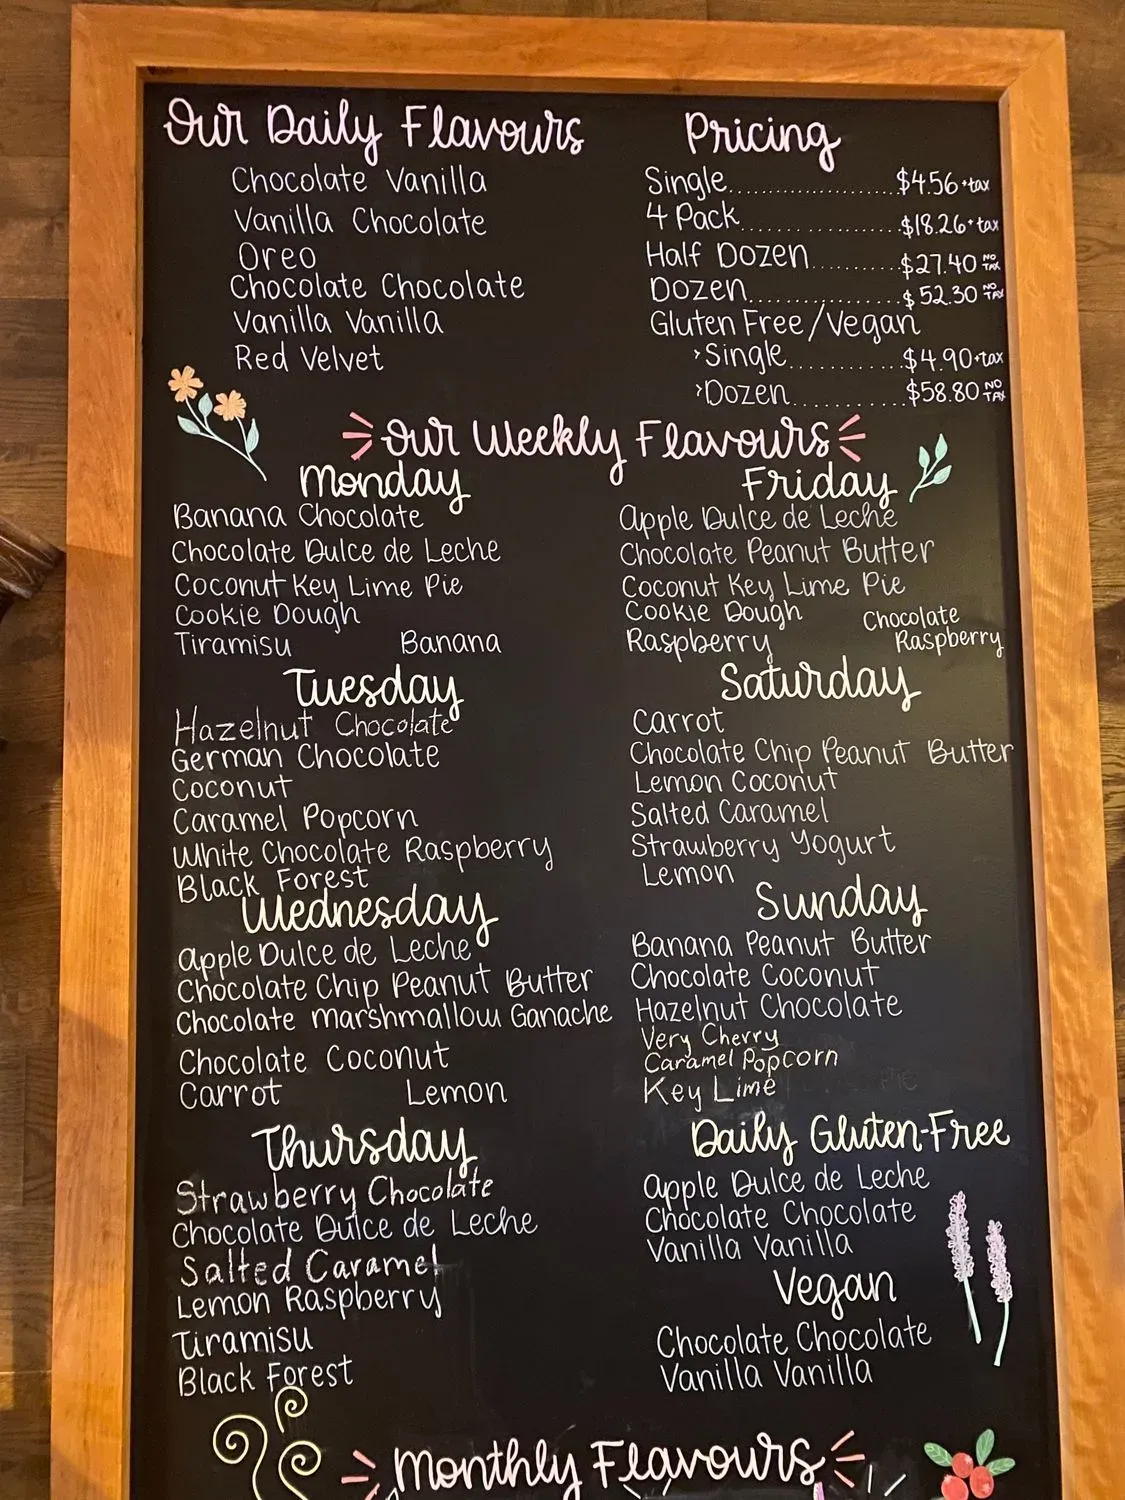 Our Daily Flavours
Chocolate Vanilla
Vanilla Chocolate
Oreo
Chocolate Chocolate
Vanilla Vanilla
Red Velvet
Pricing
Single....................$4.56+tax
4 Pack....................$18.26+tax
Half Dozen..........$27.40 NO TAX
Dozen..................$52.30 NO TAX
Gluten Free/Vegan
>Single..............$4.90+tax
>Dozen.............$58.80 NO TAX
Our Weekly Flavours
Monday
Banana Chocolate
Chocolate Dulce de Leche
Coconut Key Lime Pie
Cookie Dough
Tiramisu Banana
Tuesday
Hazelnut Chocolate
German Chocolate
Coconut
Caramel Popcorn
White Chocolate Raspberry
Black Forest
Wednesday
Apple Dulce de Leche
Chocolate Chip Peanut Butter
Chocolate Marshmallow Ganache
Chocolate Coconut
Carrot Lemon
Thursday
Strawberry Chocolate
Chocolate Dulce de Leche
Salted Caramel
Lemon Raspberry
Tiramisu
Black Forest
Friday
Apple Dulce de Leche
Chocolate Peanut Butter
Coconut Key Lime Pie
Cookie Dough
Raspberry
Chocolate
Raspberry
Saturday
Carrot
Chocolate Chip Peanut Butter
Lemon Coconut
Salted Caramel
Strawberry Yogurt
Lemon
Sunday
Banana Peanut Butter
Chocolate Coconut
Hazelnut Chocolate
Very Cherry
Caramel Popcorn
Key Lime
Daily Gluten-Free
Apple Dulce de Leche
Chocolate Chocolate
Vanilla Vanilla
Vegan
Chocolate Chocolate
Vanilla Vanilla
Monthly Flavours